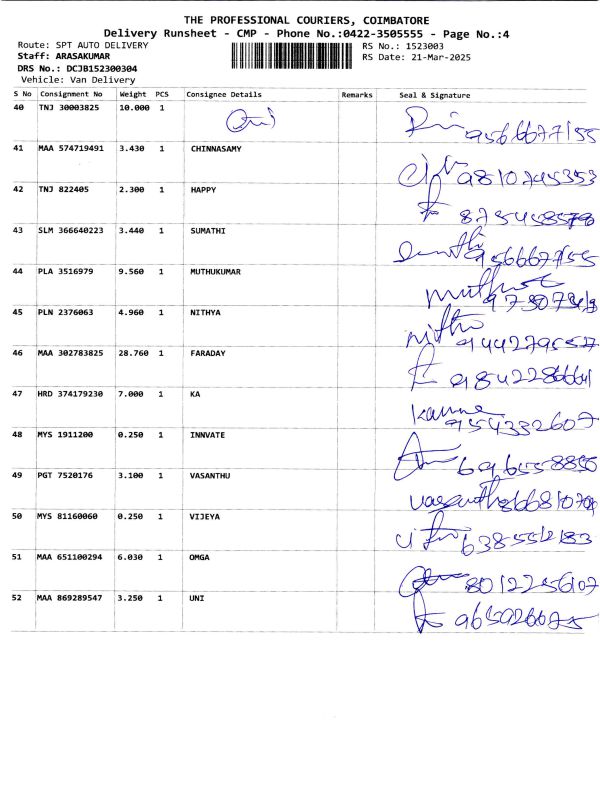 THE PROFESSIONAL COURIERS, COIMBATORE
Delivery Runsheet - CMP - Phone No.:0422-3505555 - Page No.:4
Route: SPT AUTO DELIVERY RS No.: 1523003
Staff: ARASAKUMAR RS Date: 21-Mar-2025
DRS No.: DCJB152300304
Vehicle: Van Delivery
S No Consignment No Weight PCS Consignee Details Remarks Seal & Signature
40 TNJ 30003825 10.000 1 9566677155
41 MAA 574719491 3.430 1 CHINNASAMY 9810745353
42 TNJ 822405 2.300 1 HAPPY
43 SLM 366640223 3.440 1 SUMATHI 9566677155
44 PLA 3516979 9.560 1 MUTHUKUMAR
45 PLN 2376063 4.960 1 NITHYA
46 MAA 302783825 28.760 1 FARADAY
47 HRD 374179230 7.000 1 KA 954332607
48 MYS 1911200 0.250 1 INNVATE
49 PGT 7520176 3.100 1 VASANTHU
50 MYS 81160060 0.250 1 VIJEYA
51 MAA 651100294 6.030 1 OMGA 8012256107
52 MAA 869289547 3.250 1 UNI